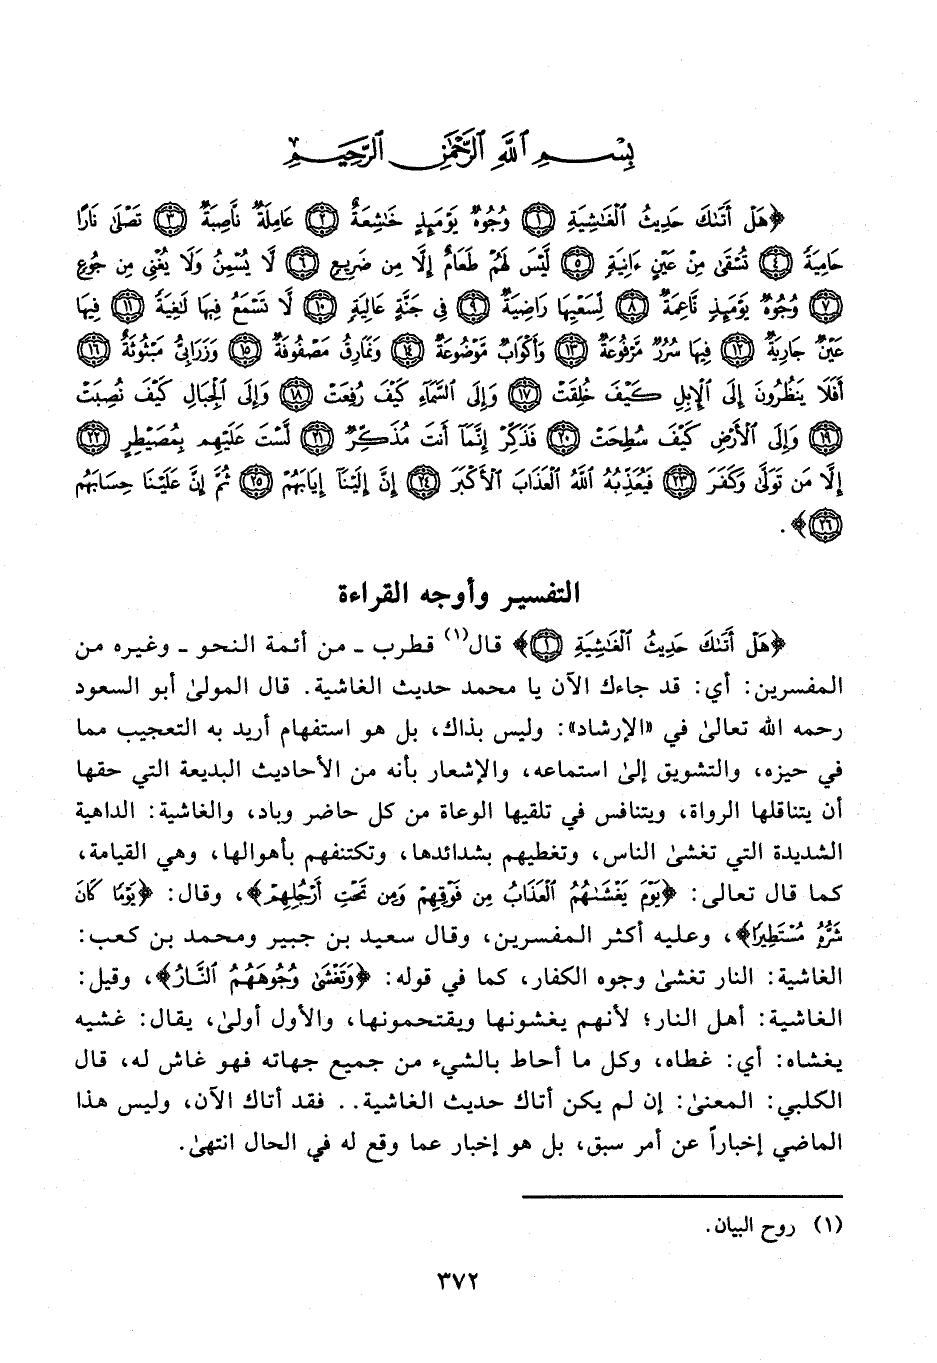 بِسْمِ ٱللَّهِ ٱلرَّحْمَٰنِ ٱلرَّحِيمِ
﴿هَلْ أَتَىٰكَ حَدِيثُ ٱلْغَٰشِيَةِ ۝١ وُجُوهٌ يَوْمَئِذٍ خَٰشِعَةٌ ۝٢ عَامِلَةٌ نَّاصِبَةٌ ۝٣ تَصْلَىٰ نَارًا
حَامِيَةً ۝٤ تُسْقَىٰ مِنْ عَيْنٍ ءَانِيَةٍ ۝٥ لَّيْسَ لَهُمْ طَعَامٌ إِلَّا مِن ضَرِيعٍ ۝٦ لَّا يُسْمِنُ وَلَا يُغْنِى مِن جُوعٍ
۝٧ وُجُوهٌ يَوْمَئِذٍ نَّاعِمَةٌ ۝٨ لِّسَعْيِهَا رَاضِيَةٌ ۝٩ فِى جَنَّةٍ عَالِيَةٍ ۝١٠ لَّا تَسْمَعُ فِيهَا لَٰغِيَةً ۝١١ فِيهَا
عَيْنٌ جَارِيَةٌ ۝١٢ فِيهَا سُرُرٌ مَّرْفُوعَةٌ ۝١٣ وَأَكْوَابٌ مَّوْضُوعَةٌ ۝١٤ وَنَمَارِقُ مَصْفُوفَةٌ ۝١٥ وَزَرَابِىُّ مَبْثُوثَةٌ ۝١٦
أَفَلَا يَنظُرُونَ إِلَى ٱلْإِبِلِ كَيْفَ خُلِقَتْ ۝١٧ وَإِلَى ٱلسَّمَآءِ كَيْفَ رُفِعَتْ ۝١٨ وَإِلَى ٱلْجِبَالِ كَيْفَ نُصِبَتْ
۝١٩ وَإِلَى ٱلْأَرْضِ كَيْفَ سُطِحَتْ ۝٢٠ فَذَكِّرْ إِنَّمَآ أَنتَ مُذَكِّرٌ ۝٢١ لَّسْتَ عَلَيْهِم بِمُصَيْطِرٍ ۝٢٢
إِلَّا مَن تَوَلَّىٰ وَكَفَرَ ۝٢٣ فَيُعَذِّبُهُ ٱللَّهُ ٱلْعَذَابَ ٱلْأَكْبَرَ ۝٢٤ إِنَّ إِلَيْنَآ إِيَابَهُمْ ۝٢٥ ثُمَّ إِنَّ عَلَيْنَا حِسَابَهُم
۝٢٦﴾.
التفسير وأوجه القراءة
﴿هَلْ أَتَىٰكَ حَدِيثُ ٱلْغَٰشِيَةِ ۝١﴾ قال(١) قطرب ـ من أئمة النحو ـ وغيره من
المفسرين: أي: قد جاءك الآن يا محمد حديث الغاشية. قال المولىٰ أبو السعود
رحمه الله تعالىٰ في «الإرشاد»: وليس بذاك، بل هو استفهام أريد به التعجيب مما
في حيزه، والتشويق إلىٰ استماعه، والإشعار بأنه من الأحاديث البديعة التي حقها
أن يتناقلها الرواة، ويتنافس في تلقيها الوعاة من كل حاضر وباد، والغاشية: الداهية
الشديدة التي تغشىٰ الناس، وتغطيهم بشدائدها، وتكتنفهم بأهوالها، وهي القيامة،
كما قال تعالى: ﴿يَوْمَ يَغْشَىٰهُمُ ٱلْعَذَابُ مِن فَوْقِهِمْ وَمِن تَحْتِ أَرْجُلِهِمْ﴾، وقال: ﴿يَوْمًا كَانَ
شَرُّهُۥ مُسْتَطِيرًا﴾، وعليه أكثر المفسرين، وقال سعيد بن جبير ومحمد بن كعب:
الغاشية: النار تغشىٰ وجوه الكفار، كما في قوله: ﴿وَتَغْشَىٰ وُجُوهَهُمُ ٱلنَّارُ﴾، وقيل:
الغاشية: أهل النار؛ لأنهم يغشونها ويقتحمونها، والأول أولىٰ، يقال: غشيه
يغشاه: أي: غطاه، وكل ما أحاط بالشيء من جميع جهاته فهو غاش له، قال
الكلبي: المعنىٰ: إن لم يكن أتاك حديث الغاشية.. فقد أتاك الآن، وليس هذا
الماضي إخباراً عن أمر سبق، بل هو إخبار عما وقع له في الحال انتهىٰ.
(١) روح البيان.
٣٧٢